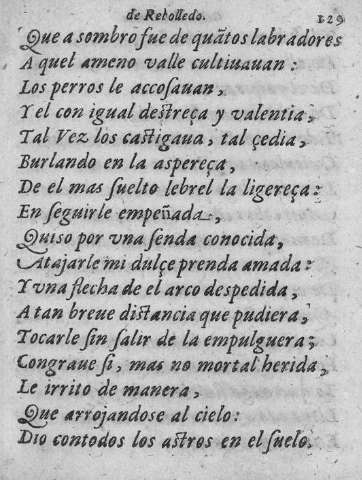 de Rebolledo. 129
Que asombro fue de quãtos labradores
A quel ameno valle cultiuauan:
Los perros le accosauan,
Y el con igual destreça y valentia,
Tal Vez los castigaua, tal çedia,
Burlando en la aspereça,
De el mas suelto lebrel la ligereça:
En seguirle empeñada,
Quiso por vna senda conocida,
Atajarle mi dulçe prenda amada:
Y vna flecha de el arco despedida,
A tan breue distancia que pudiera,
Tocarle sin salir de la empulguera;
Congraue si, mas no mortal herida,
Le irrito de manera,
Que arrojandose al cielo:
Dio contodos los astros en el suelo.